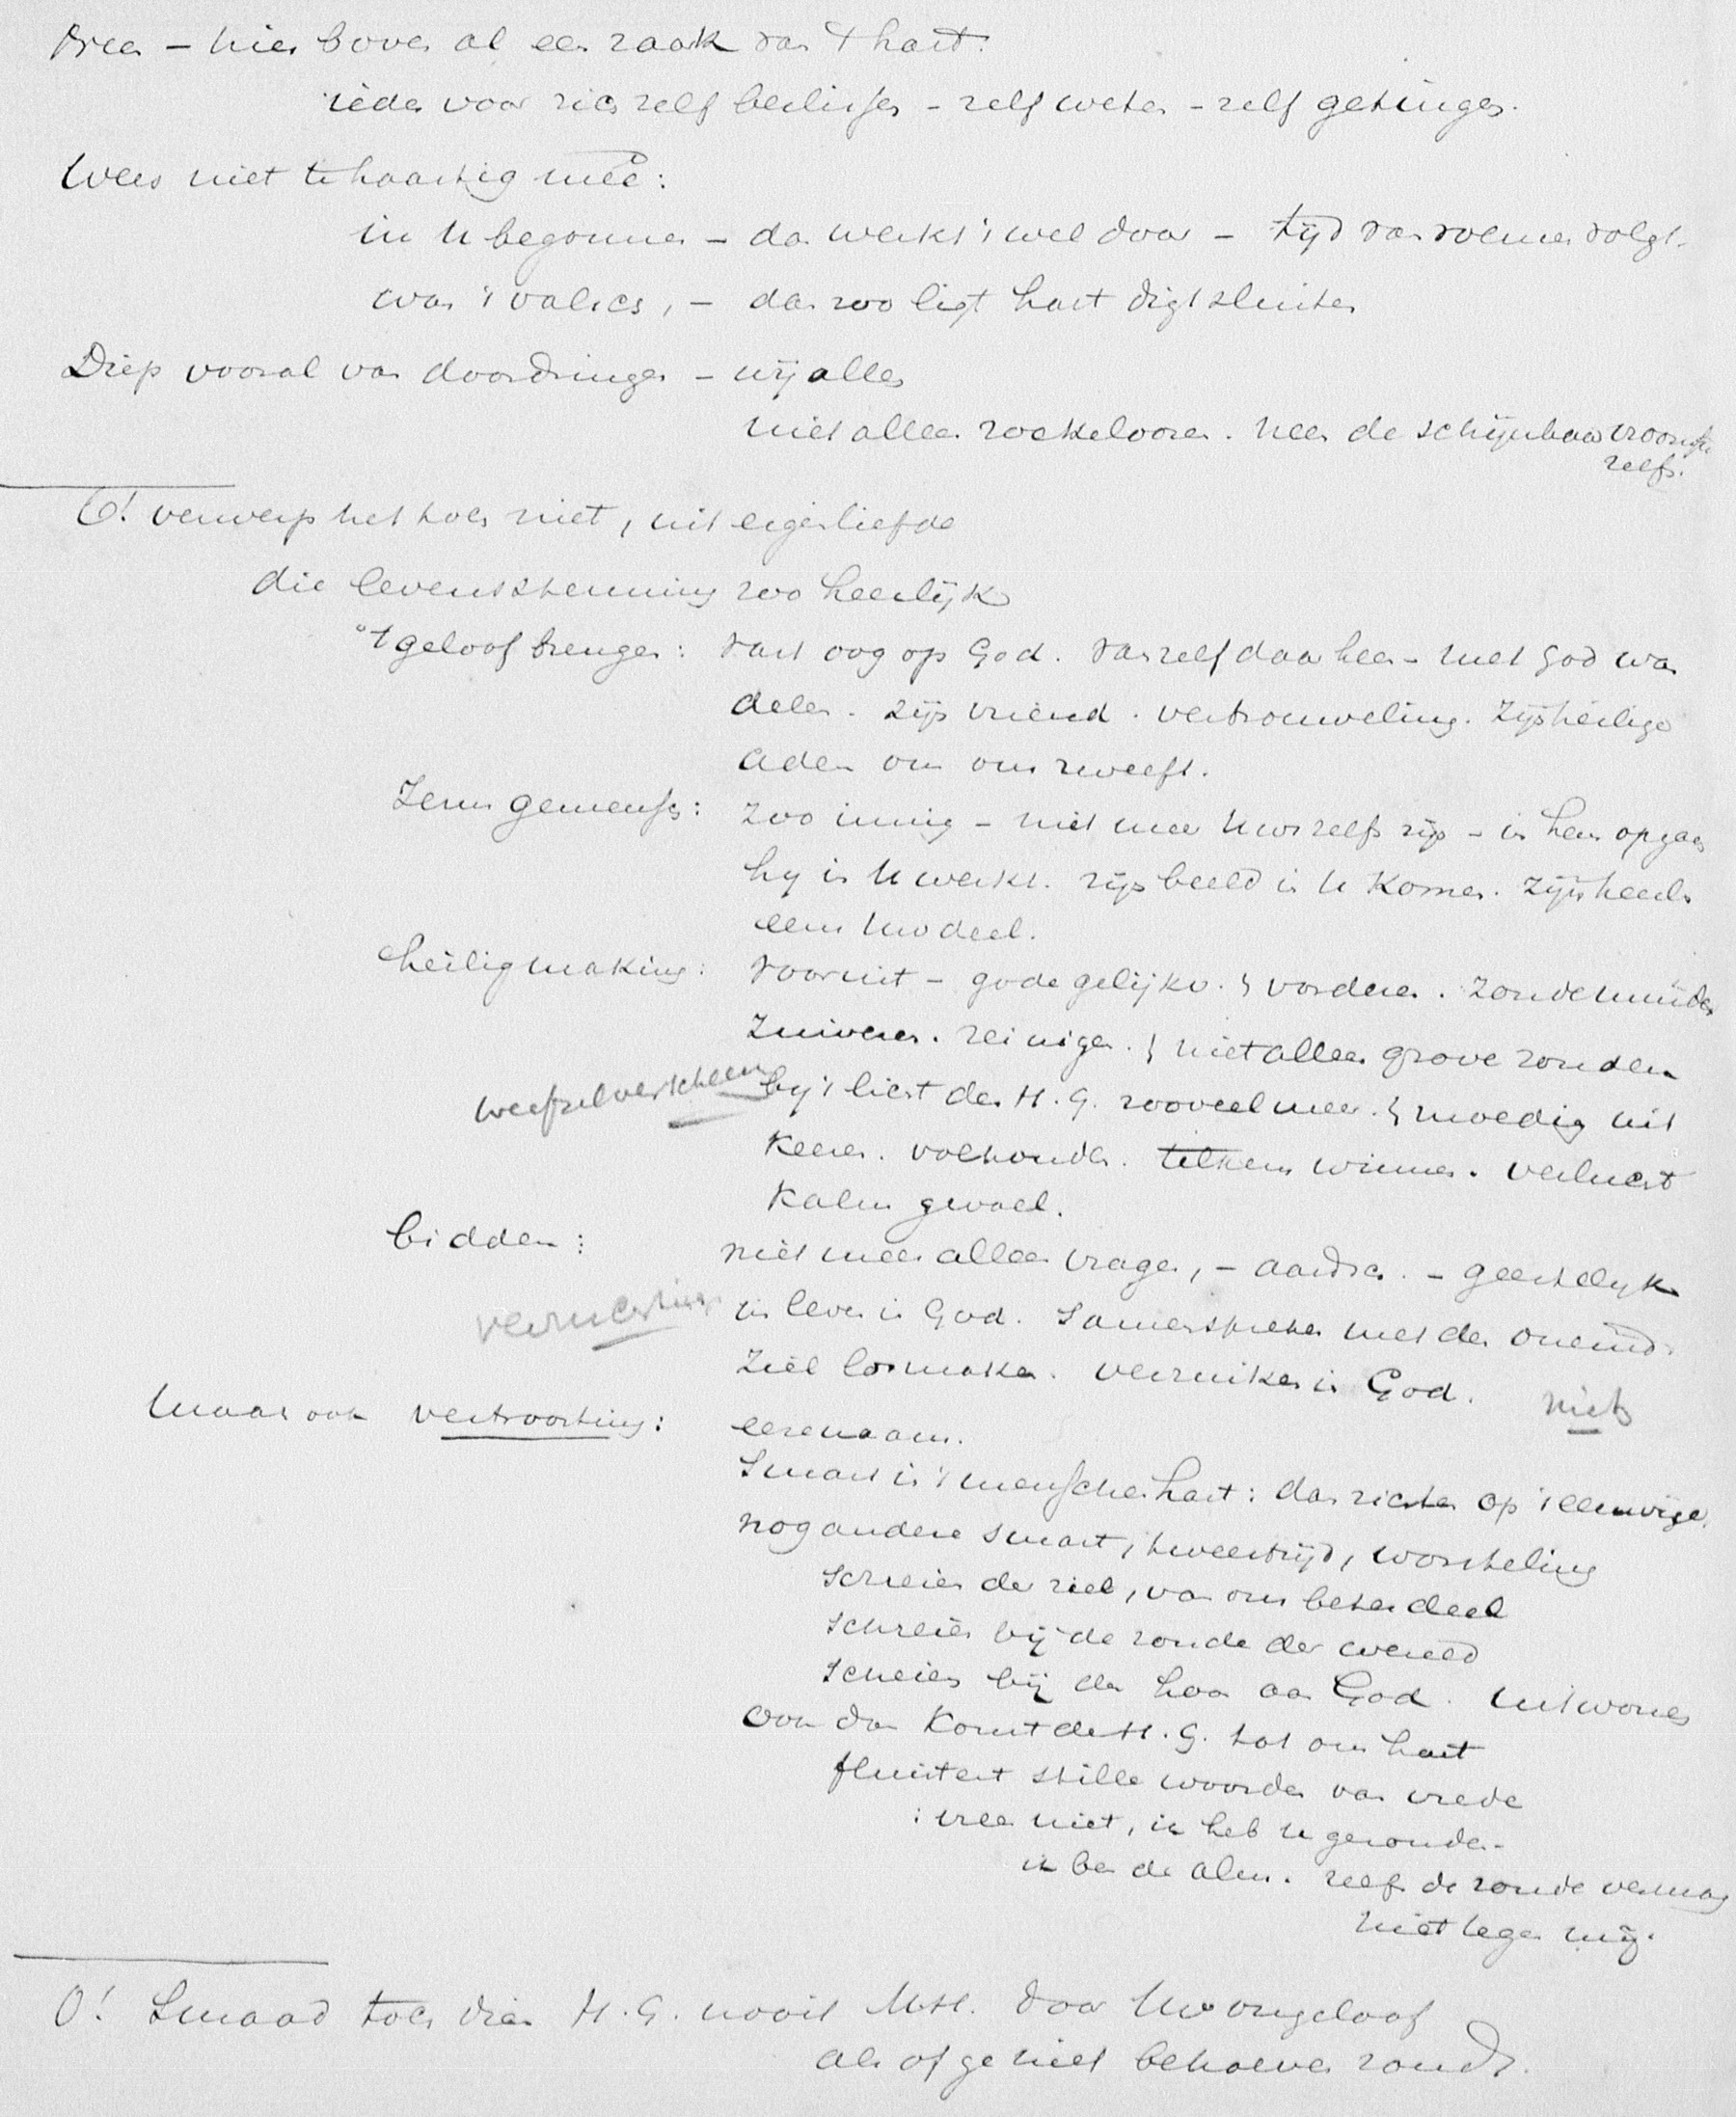 Neen – hier boven al een zaak van 't hart.
ieder voor zich zelf beslissen – zelf weten – zelf getuigen.
Wees niet te haastig mee:
in U begonnen – dan werkt 't wel door – tijd van volgt.
was 't valsch, – dan zoo ligt hart digt sluiten
Diep vooral van doordringen – wij allen
niet alleen roekeloozen. neen de schijnbaar vroomste
zelfs.
O! verwerp het toch niet, uit eigenliefde
die levensstemming zoo heerlijk
't geloof brengen: vast oog op God. van zelf daar heen – met God wan
delen. zijn vriend. vertrouweling. Zijn heilige
adem om ons zweeft.
Jezus gemeensch: zoo innig – niet meer Uws zelfs zijn – in hem opgaan
hij in U werkt. zijn beeld in U komen. Zijn heerl.
eens Uw deel.
heiligmaking: vooruit – gode gelijkv. } vorderen. zonde
zuiveren. reinigen. } niet alleen grove zonden
weefsel verscheen bij 't licht des H. G. zooveel meer. } moedig uit
keeren. volhouden. telkens winnen. verlicht
kalm gevoel.
bidden: niet meer alleen vragen, – aardsch. – geestelijk
in leven in God. Samenspreken met den oneind.
ziel losmaken. verzinken in God. niets
Maar ook vertroosting: eerenaam.
Smart in 't menschenhart: dan zien op 't eeuwige.
nog andere smart, tweestrijd, worsteling
schreien der ziel, van ons beter deel
schreien bij de zonde der wereld
schreien bij den haar aan God.
ook dan komt de H. G. tot ons hart
fluistert stille woorden van vrede
: vrees niet, ik heb u gevonden –
ik ben de alm. zelfs de zonde vermag
niet tegen mij.
O! Smaad toch dien H. G. nooit M.H. door Uw ongeloof
als of ge niet behoeven zoudt.